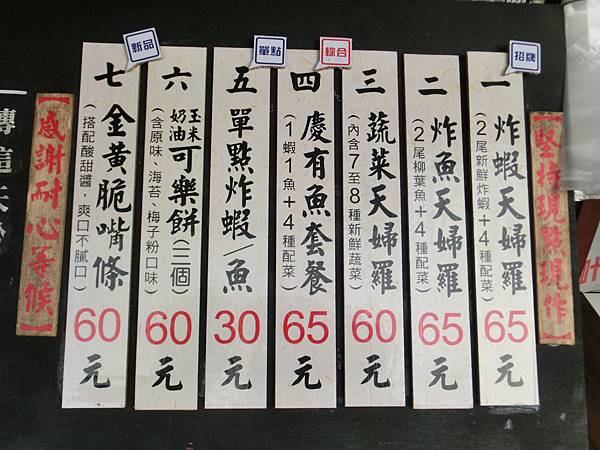 堅持現點現作
招牌
一 炸蝦天婦羅
(2尾新鮮炸蝦+4種配菜)
65元
二 炸魚天婦羅
(2尾柳葉魚+4種配菜)
65元
三 蔬菜天婦羅
(內含7至8種新鮮蔬菜)
60元
綜合
四 慶有魚套餐
(1蝦1魚+4種配菜)
65元
單點
五 單點炸蝦/魚
30元
六 玉米奶油可樂餅(三個)
(含原味、海苔、梅子粉口味)
60元
新品
七 金黃脆嘴條
(搭配酸甜醬,爽口不膩口)
60元
感謝耐心等候